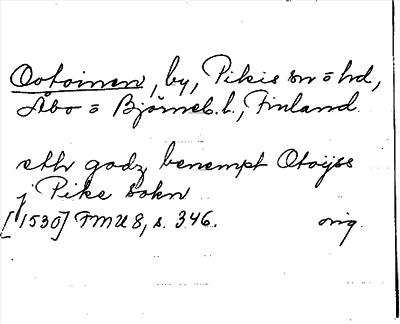 Ootoinen, by, Pikis sn o hd,
Åbo o Björneb. l., Finland.
eth godz benempt Otoÿss
j Pike sokn
[1530] FMU 8, s. 346. orig.